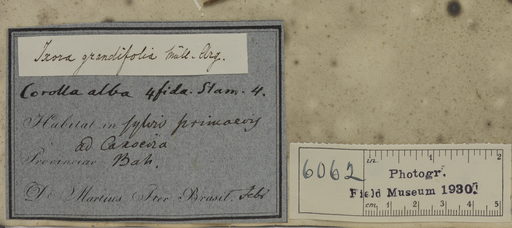 Ixora grandifolia Müll-Arg.
Corolla alba 4fida. Stam. 4.
Habitat in sylvis primaevis
ad Caxoeira
Provinciae Bah.
Dr. Martius Iter Brasil. Febr
6062
in. 1 2
Photogr.
Field Museum 1930.
cm. 1 2 3 4 5